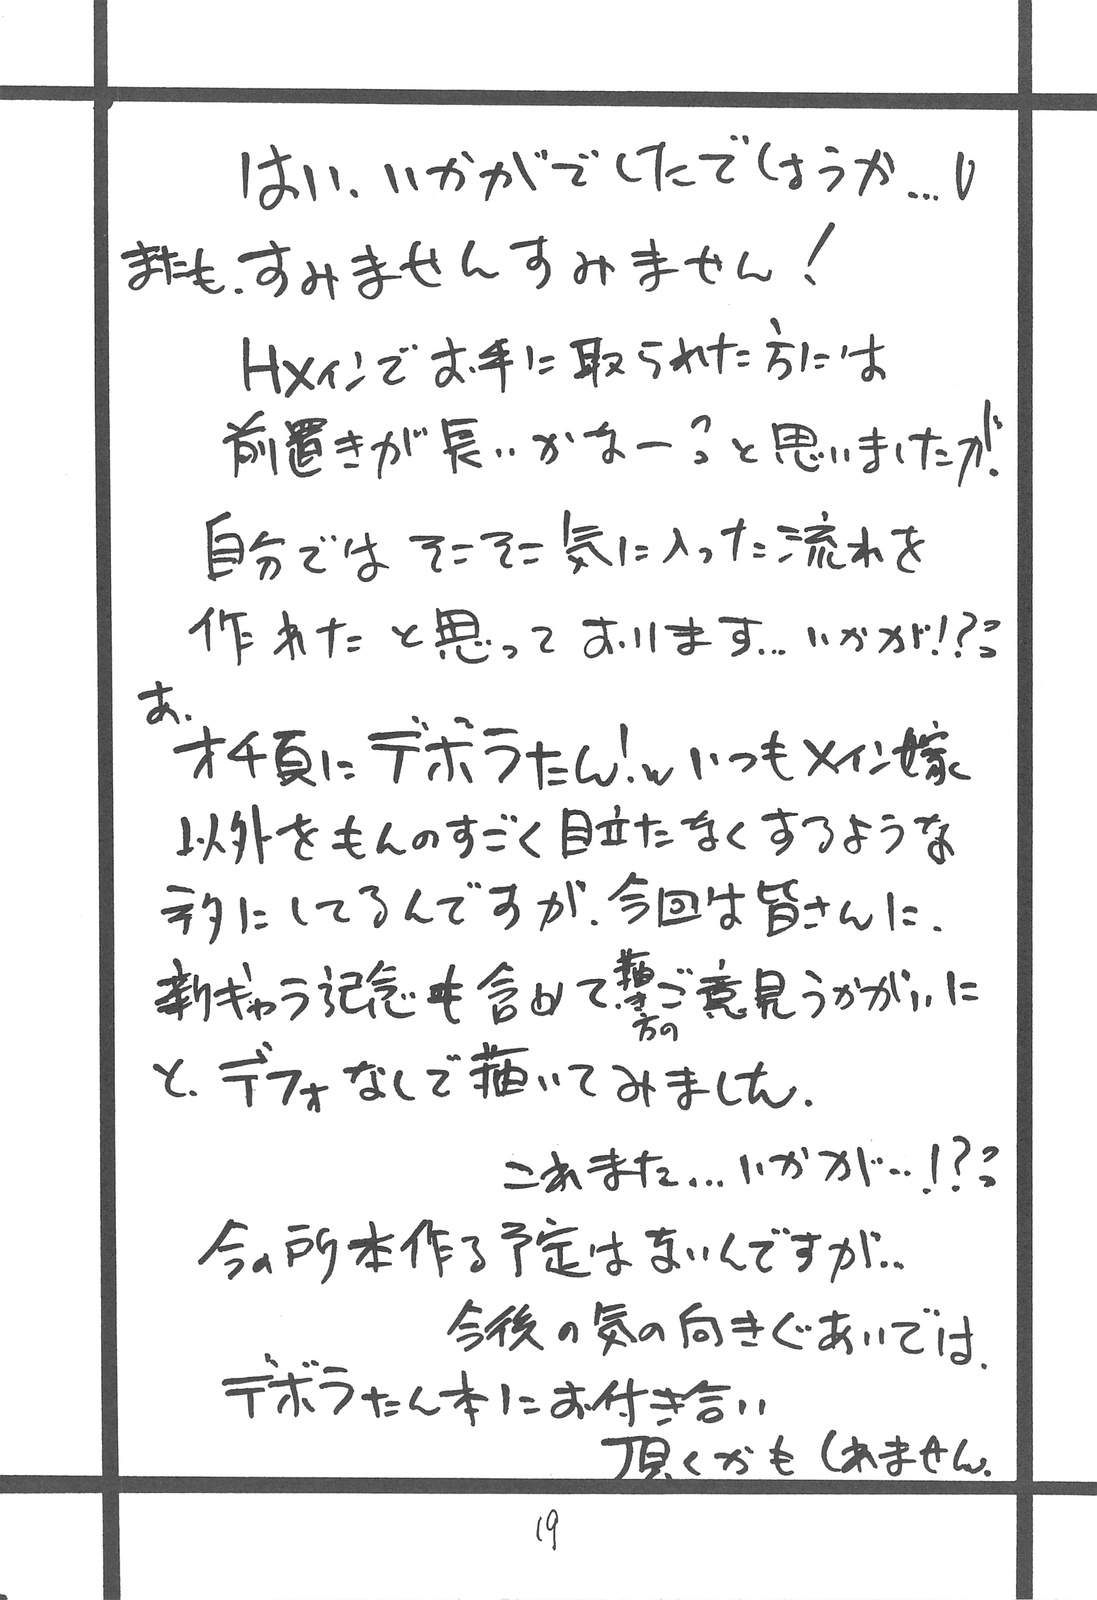 はい、いかがでしたでしょうか…
またも、すみませんすみません!
Hメインでお手に取られた方には
前置きが長いかなーっと思いましたが、
自分ではそこそこ気に入った流れを
作れたと思っております…いかが!?っ
あ、
オチ頁にデボラたん!w いつもメイン嫁
以外をもんのすごく目立たなくするような
テタにしてるんですが、今回は皆さんに、
新ギャラ記念も含めて、描き方のご意見うかがいに
と、デフォなしで描いてみました。
これまた…いかが…!?っ
今の所本作る予定はないんですが…
今後の気の向きぐあいでは、
デボラたん本にお付き合い
頂くかもしれません。
19